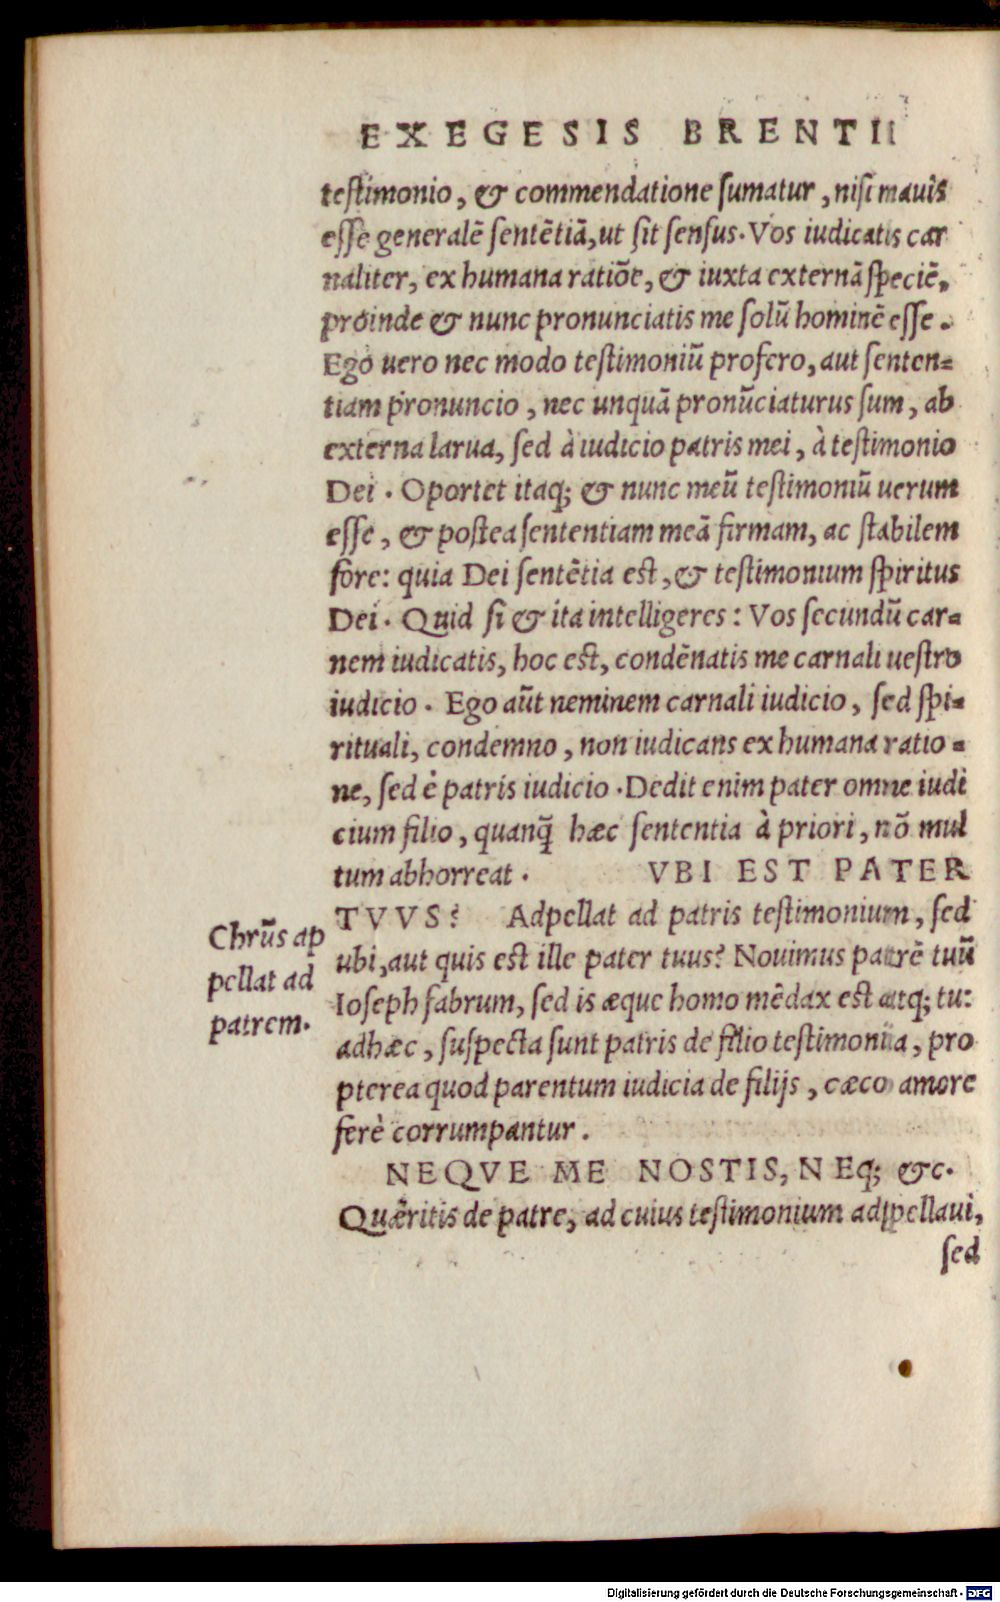 EXEGESIS BRENTII
testimonio, & commendatione sumatur, nisi mauis
esse generalē sentētiā, ut sit sensus. Vos iudicatis car
naliter, ex humana ratiōe, & iuxta externā speciē,
proinde & nunc pronunciatis me solū hominē esse.
Ego uero nec modo testimoniū profero, aut senten=
tiam pronuncio, nec unquā pronūciaturus sum, ab
externa larua, sed à iudicio patris mei, à testimonio
Dei. Oportet itaq; & nunc meū testimoniū uerum
esse, & postea sententiam meā firmam, ac stabilem
fore: quia Dei sentētia est, & testimonium spiritus
Dei. Quid si & ita intelligeres: Vos secundū car=
nem iudicatis, hoc est, condēnatis me carnali uestro
iudicio. Ego aūt neminem carnali iudicio, sed spi=
rituali, condemno, non iudicans ex humana ratio=
ne, sed è patris iudicio. Dedit enim pater omne iudi
cium filio, quanq̄ hæc sententia à priori, nō mul
tum abhorreat. VBI EST PATER
TVVS? Adpellat ad patris testimonium, sed
ubi, aut quis est ille pater tuus? Nouimus patrē tuū
Ioseph fabrum, sed is æque homo mēdax est atq; tu:
adhæc, suspecta sunt patris de filio testimonia, pro
pterea quod parentum iudicia de filijs, cæco amore
ferè corrumpantur.
Chrūs ap
pellat ad
patrem.
NEQVE ME NOSTIS, NEq; &c.
Quæritis de patre, ad cuius testimonium adpellaui,
sed
Digitalisierung gefördert durch die Deutsche Forschungsgemeinschaft - DFG